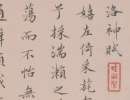 洛神賦
嬉左倚采旄
兮採湍瀨之
蕩而不怡無